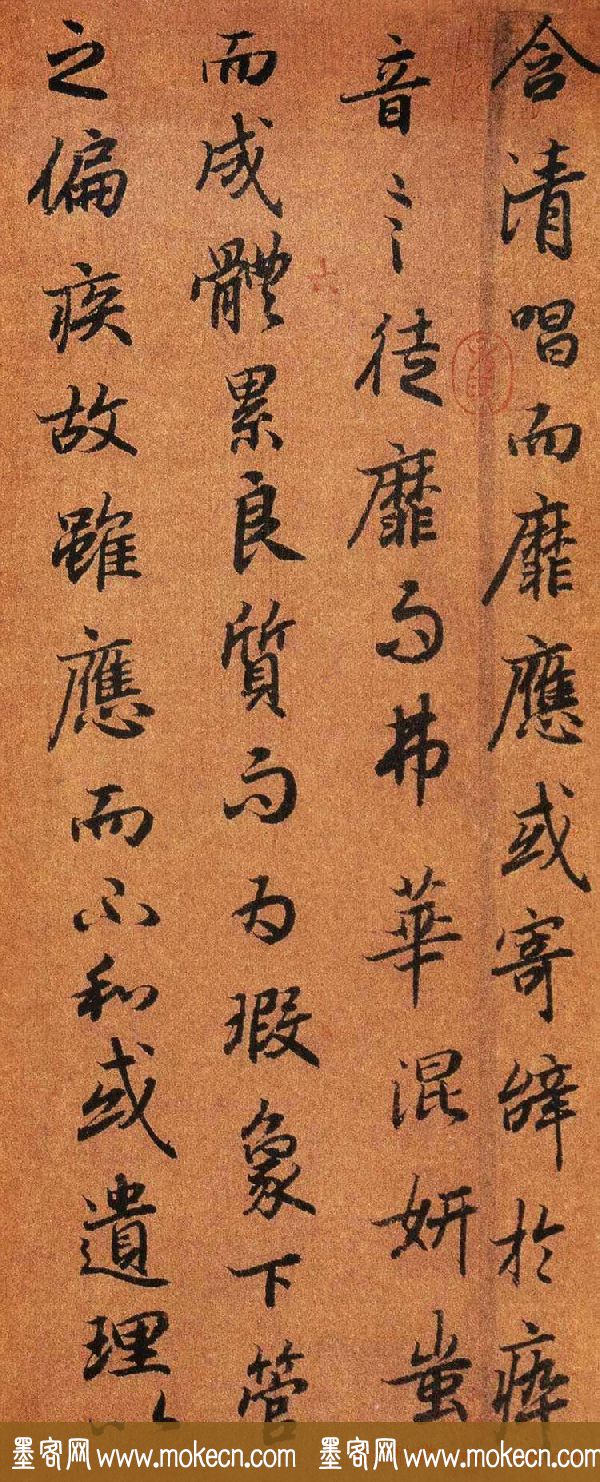 含清唱而靡應或寄辭於瘁
音言徒靡而弗華混妍蚩
而成體累良質而为瑕象下管
之偏疾故雖應而不和或遺理
墨客网 www.mokecn.com 墨客网 www.mokecn.com